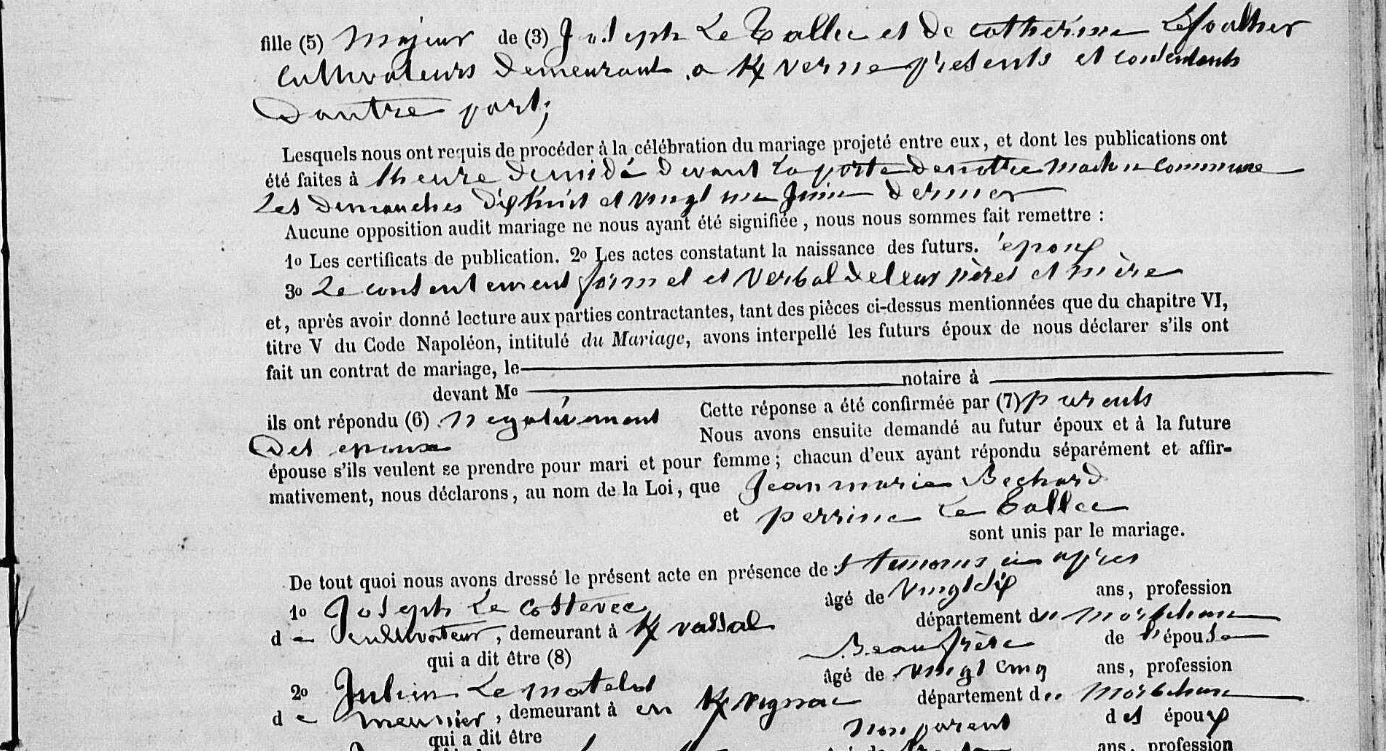 fille (5) Majeur de (3) Joseph Le Tallec et de Catherine
Cultivateurs Demeurant a présents et
Dautre part;
Lesquels nous ont requis de procéder à la célébration du mariage projeté entre eux, et dont les publications ont
été faites à lheure Demidi Devant La porte Denottre commune
Les Dimanches et Vingt Juin Dernier
Aucune opposition audit mariage ne nous ayant été signifiée, nous nous sommes fait remettre :
1o Les certificats de publication. 2o Les actes constatant la naissance des futurs. époux
3o Le formel et Verbal deleur pères et mère
et, après avoir donné lecture aux parties contractantes, tant des pièces ci-dessus mentionnées que du chapitre VI,
titre V du Code Napoléon, intitulé du Mariage, avons interpellé les futurs époux de nous déclarer s'ils ont
fait un contrat de mariage, le
devant Me notaire à
ils ont répondu (6) negativement Cette réponse a été confirmée par (7) parents
Des epoux Nous avons ensuite demandé au futur époux et à la future
épouse s'ils veulent se prendre pour mari et pour femme ; chacun d'eux ayant répondu séparément et affir-
mativement, nous déclarons, au nom de la Loi, que Jean marie Bechard
et perrine Le Tallec
sont unis par le mariage.
De tout quoi nous avons dressé le présent acte en présence de
1o Joseph Le âgé de ans, profession
d e cultivateur, demeurant à département du Morbihan
qui a dit être (8) Beaufrère de l'épouse
2o Julien Le matelot âgé de vingt cinq ans, profession
d e meunier, demeurant à en département du Morbihan
qui a dit être non parent des époux
âgé de ans, profession